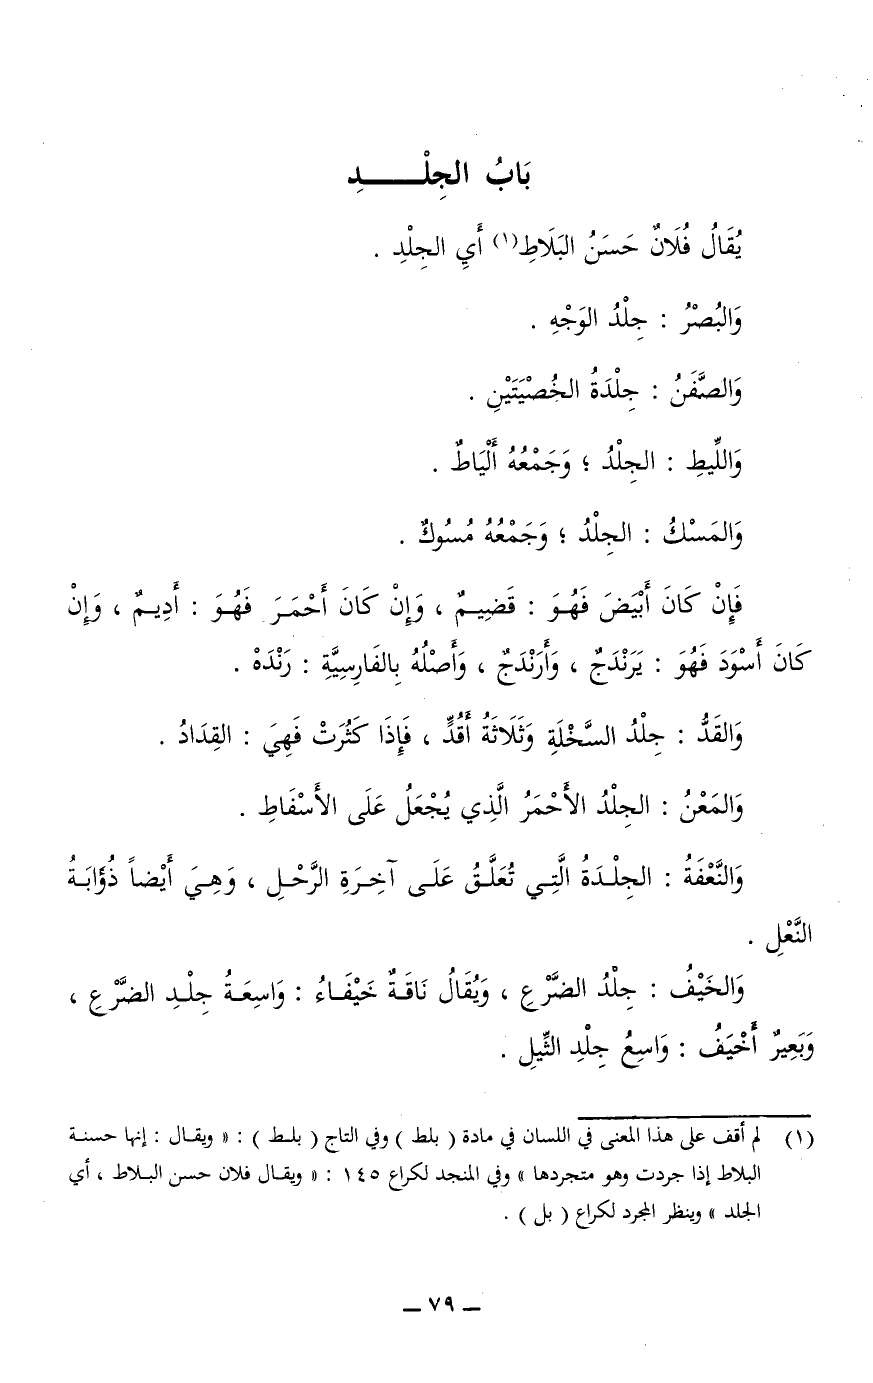 بَابُ الجِلْـــــدِ
يُقَالُ فُلَانٌ حَسَنُ البَلَاطِ(١) أَيِ الجِلْدِ .
وَالبُصْرُ : جِلْدُ الوَجْهِ .
وَالصَّفَنُ : جِلْدَةُ الخُصْيَتَيْنِ .
وَاللِّيطِ : الجِلْدُ ؛ وَجَمْعُهُ أَلْيَاطٌ .
وَالمَسْكُ : الجِلْدُ ؛ وَجَمْعُهُ مُسُوكٌ .
فَإِنْ كَانَ أَبْيَضَ فَهُوَ : قَضِيمٌ ، وَإِنْ كَانَ أَحْمَرَ فَهُوَ : أَدِيمٌ ، وَإِنْ
كَانَ أَسْوَدَ فَهُوَ : يَرَنْدَجٌ ، وَأَرَنْدَجٌ ، وَأَصْلُهُ بِالفَارِسِيَّةِ : رَنْدَهْ .
وَالقَدُّ : جِلْدُ السَّخْلَةِ وَثَلَاثَةُ أَقُدٍّ ، فَإِذَا كَثُرَتْ فَهِيَ : القِدَادُ .
وَالمَعْنُ : الجِلْدُ الأَحْمَرُ الَّذِي يُجْعَلُ عَلَى الأَسْفَاطِ .
وَالنَّعْفَةُ : الجِلْدَةُ الَّتِي تُعَلَّقُ عَلَى آخِرَةِ الرَّحْلِ ، وَهِيَ أَيْضاً ذُؤَابَةُ
النَّعْلِ .
وَالخَيْفُ : جِلْدُ الضَّرْعِ ، وَيُقَالُ نَاقَةٌ خَيْفَاءُ : وَاسِعَةُ جِلْدِ الضَّرْعِ ،
وَبَعِيرٌ أَخْيَفُ : وَاسِعُ جِلْدِ الثِّيلِ .
(١) لم أقف على هذا المعنى في اللسان في مادة ( بلط ) وفي التاج ( بلط ) : « ويقال : إنها حسنة
البلاط إذا جردت وهو متجردها » وفي المنجد لكراع ١٤٥ : « ويقال فلان حسن البلاط ، أي
الجلد » وينظر المجرد لكراع ( بل ) .
ــ ٧٩ ــ